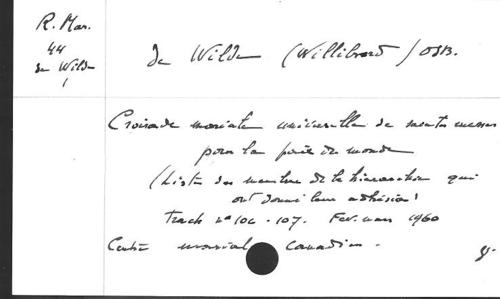 R. Mar.
44
de Wilde
1
de Wilde (Willibrord) OSB.
Croisade mariale universelle de messes
pour la paix du monde
(Liste des membres de la hiérarchie qui
ont donné leur adhésion)
Tract nº 106 - 107. Fev. mars 1960
Centre marial Canadien.